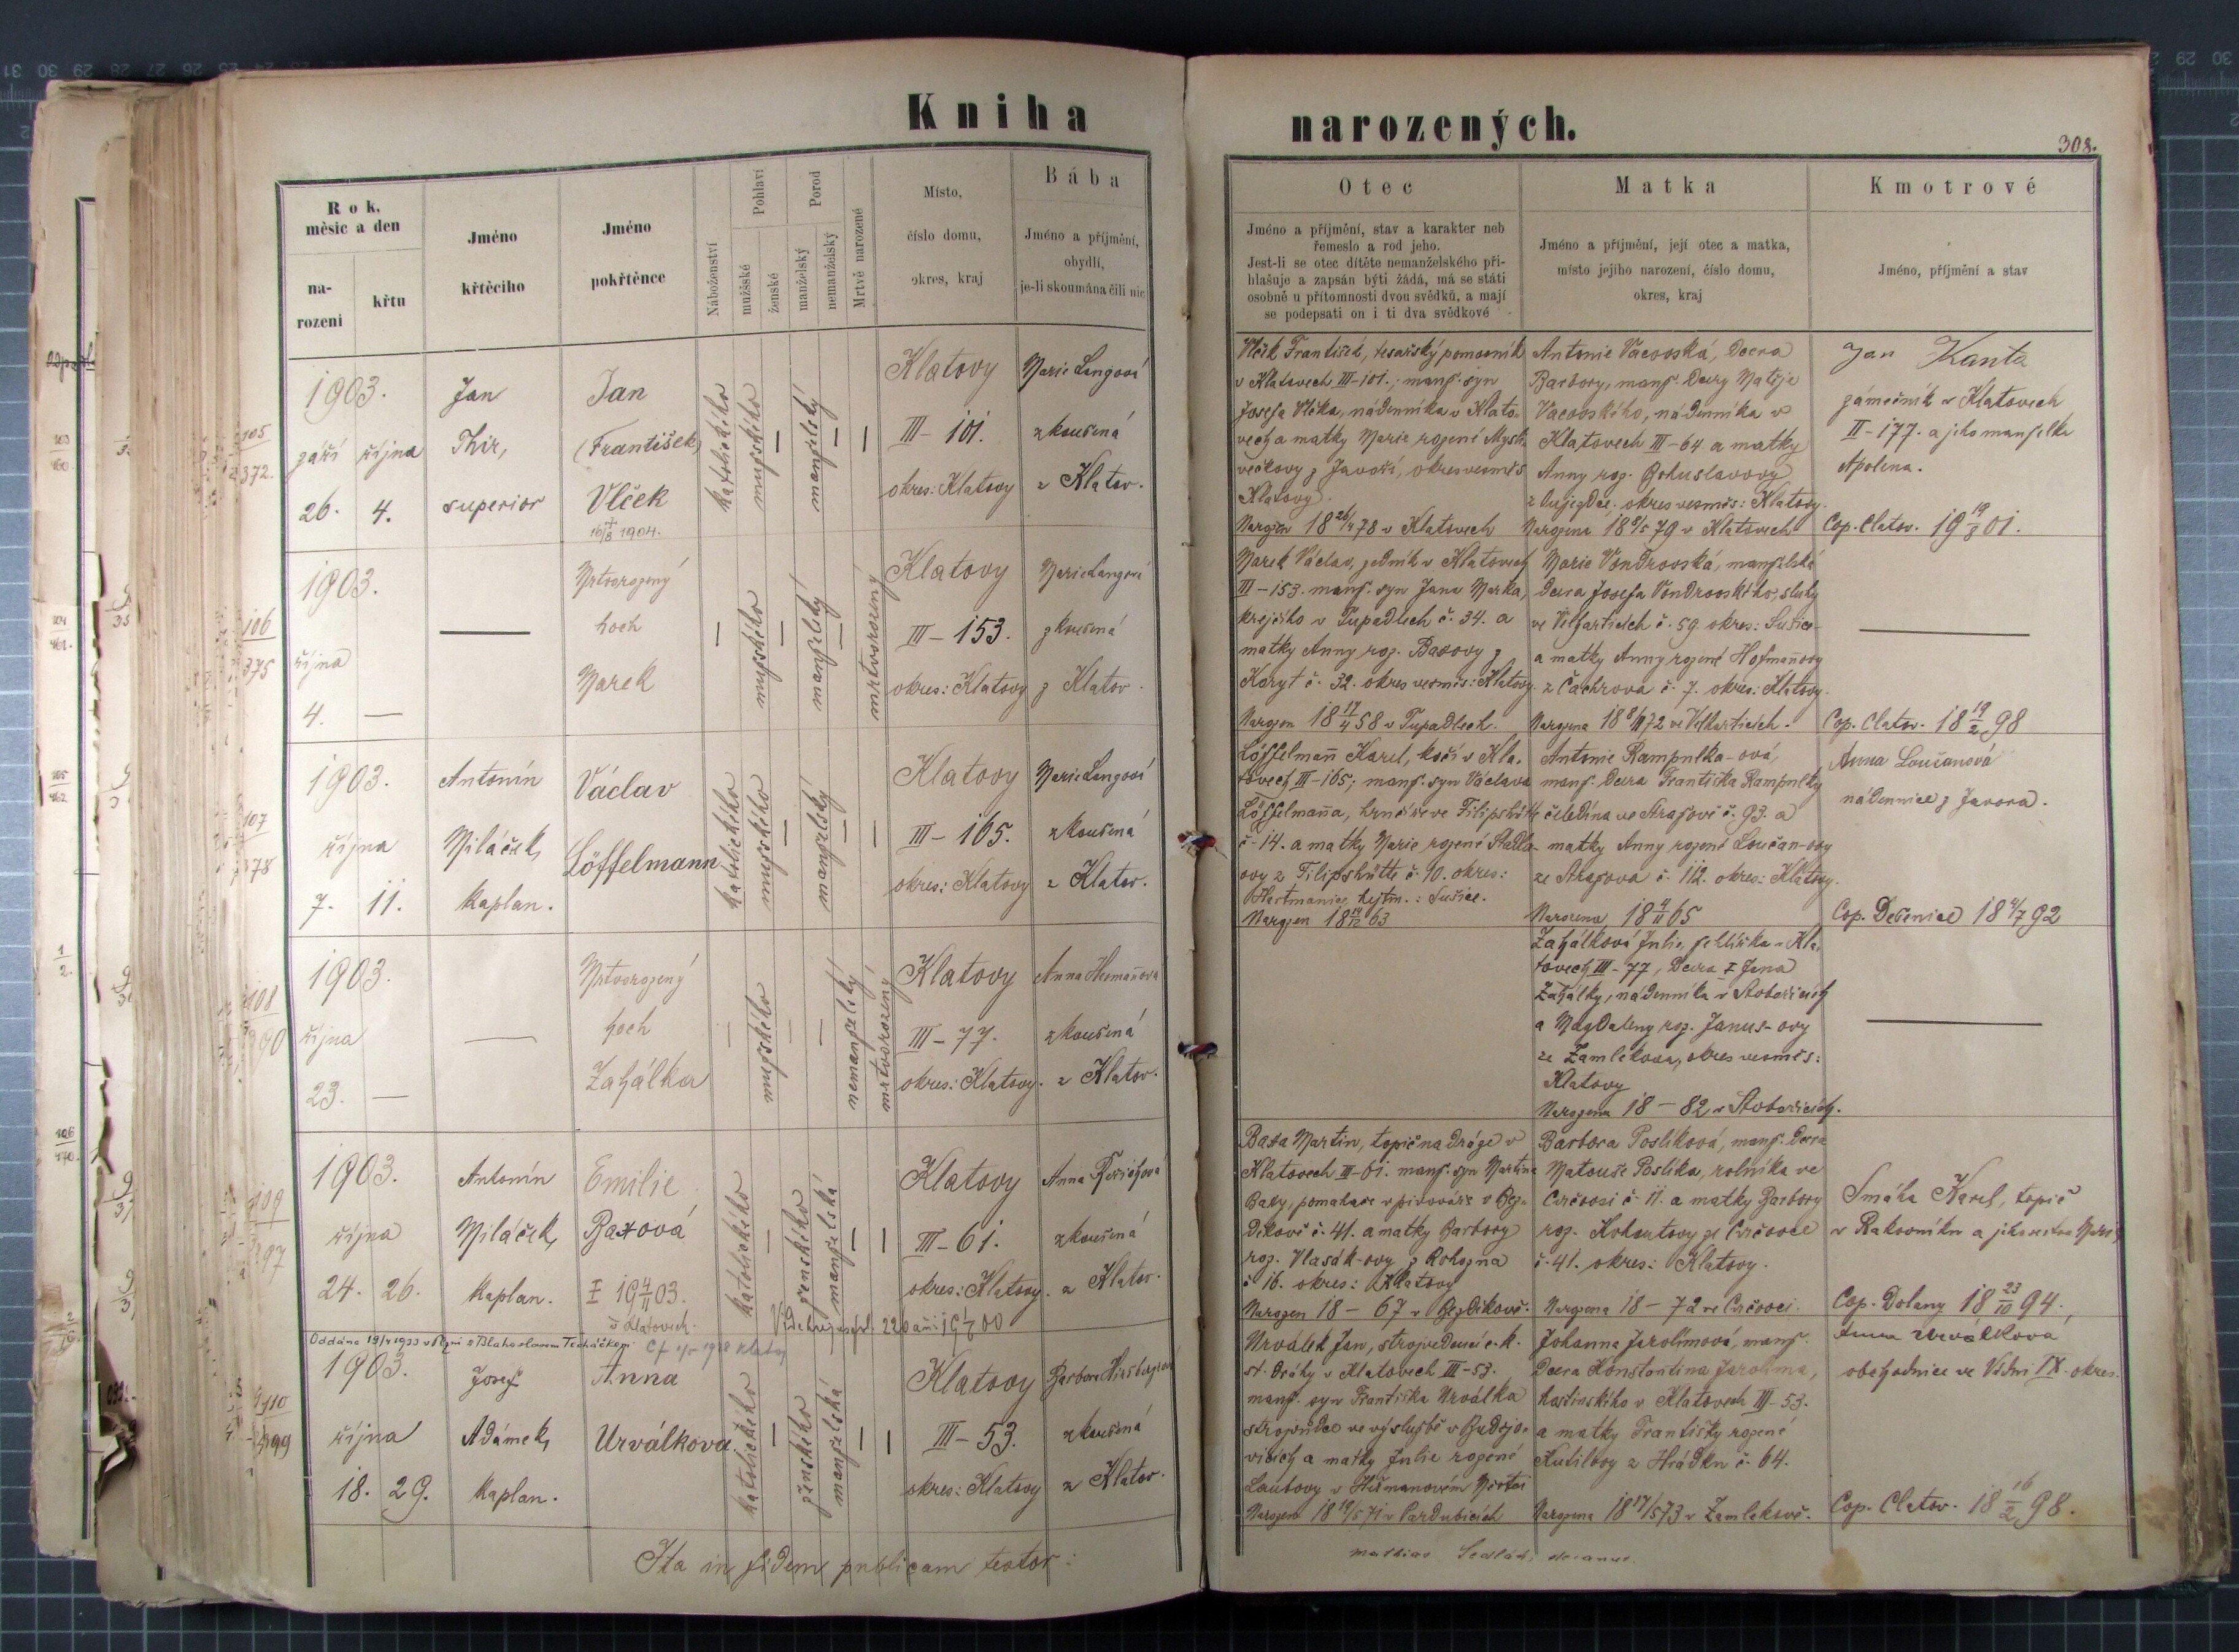 Kniha
narozených.
308.
Rok,
měsíc a den
na-
rozeni
křtu
Jméno
křtěcího
Jméno
pokřtěnce
Náboženství
Pohlaví
mužšské
ženské
Porod
manželský
nemanželský
Mrtvě narozené
Místo,
číslo domu,
okres, kraj
Bába
Jméno a příjmění,
obydlí,
je-li skoumána čili nic
Otec
Jméno a příjmění, stav a karakter neb
řemeslo a rod jeho.
Jest-li se otec dítěte nemanželského při-
hlašuje a zapsán býti žádá, má se státi
osobně u přítomnosti dvou svědků, a mají
se podepsati on i ti dva svědkové
Matka
Jméno a příjmění, její otec a matka,
místo jejího narození, číslo domu,
okres, kraj
Kmotrové
Jméno, příjmění a stav
105
372.
1903.
září října
26. 4.
Jan
Thir,
superior
Jan
(František)
Vlček
1904.
katolického
mužského
manželský
Klatovy
III-101.
okres: Klatovy
Marie Langová
zkoušená
z Klatov.
Vlček František, tesařský pomocník
v Klatovech III-101.; manž. syn
Josefa Vlčka, nádenníka v Klato-
vech a matky Marie rozené Mysli-
večkovy z Javoří, okres vesměs
Klatovy.
Narozen 18 26/4 78 v Klatovech
Antonie Vacovská, dcera
Barbory, manž. dcery Matěje
Vacovského, nádenníka v
Klatovech III-64 a matky
Anny roz. Bohuslavovy
okres vesměs: Klatovy.
Narozena 18 8/5 79 v Klatovech
Jan Kanta
zámečník v Klatovech
II-177. a jeho manželka
Apolena.
Cop. Clatov. 19 19/8 01.
106
375
1903.
října
4. —
Mrtvorozený
hoch
Marek
mužského
manželský
mrtvorozený
Klatovy
III-153.
okres: Klatovy
Marie Langová
zkoušená
z Klatov.
Marek Václav, zedník v Klatovech
III-153. manž. syn Jana Marka,
krejčího v Tupadlech č. 34. a
matky Anny roz. Baxovy z
Koryt č. 32. okres vesměs: Klatovy.
Narozen 18 17/4 58 v Tupadlech.
Marie Vondrovská, manželská
dcera Josefa Vondrovského, sluhy
ve Velharticích č. 59 okres: Sušice
a matky Anny rozené Hofmanovy
z Čachrova č. 7. okres: Klatovy.
Narozena 18 8/11 72 ve Velharticích.
Cop. Clatov. 18 19/2 98
107
378
1903.
října
7. 11.
Antonín
Miláček,
kaplan.
Václav
Löffelmann
katolického
mužského
manželský
Klatovy
III-165.
okres: Klatovy
Marie Langová
zkoušená
z Klatov.
Löffelmann Karel, kočí v Kla-
tovech III-165; manž. syn Václava
Löffelmanna, hrnčíře ve Filipshütte
č-14. a matky Marie rozené Stadla-
ovy z Filipshütte č. 10. okres:
Hartmanice, hejtm.: Sušice.
Narozen 18 14/12 63
Antonie Rampulka-ová,
manž. dcera Františka Rampulky
čeledína ve Strážově č. 93. a
matky Anny rozené Loučan-ovy
ze Strážova č. 112. okres: Klatovy.
Narozena 18 4/11 65
Anna Loučanová
nádennice z Javora.
Cop. Dešenice 18 4/7 92
108
390
1903.
října
23. —
Mrtvorozený
hoch
Zahálka
mužského
nemanželský
mrtvorozený
Klatovy
III-77.
okres: Klatovy.
Anna Hermanová
zkoušená
z Klatov.
Zahálková Julie, žehlířka v Kla-
tovech III-77, dcera † Jana
Zahálky, nádenníka v Stobořicích
a Magdaleny roz. Janus-ovy
ze Zamlekova, okres vesměs:
Klatovy
Narozena 18-82 v Stobořicích.
109
397
1903.
října
24. 26.
Antonín
Miláček,
kaplan.
Emilie
Baxová
† 19 4/11 03.
v Klatovech
katolického
ženského
manželská
Klatovy
III-61.
okres: Klatovy.
zkoušená
z Klatov.
Baxa Martin, topič na dráze v
Klatovech III-61. manž. syn Martina
Baxy, pomahače v pivováře v Bez-
děkově č. 41. a matky Barbory
roz. Vlasák-ovy z Rohozna
č 16. okres: Klatovy
Narozen 18-67 v Bezděkově.
Barbora Poslíková, manž. dcera
Matouše Poslíka, rolníka ve
Crčovsi č. 11. a matky Barbory
roz. Kohoutovy ze Crčovse
č. 41. okres: Klatovy.
Narozena 18-72 ve Crčovsi.
Smáha Karel, topič
v Rakovníku a jeho sestra Marie,
Cop. Dolany 18 23/10 94.
Oddána 19/4 1933 v Plzni s Blahoslavem Techáčkem
110
399
1903.
října
18. 29.
Josef
Adámek,
kaplan.
Anna
Urválková.
katolického
ženského
manželská
Klatovy
III-53.
okres: Klatovy
zkoušená
z Klatov.
Urválek Jan, strojvedoucí c.k.
st. dráhy v Klatovech III-53.
manž. syn Františka Urválka
strojvůdce ve výslužbě v Budějo-
vicích a matky Julie rozené
Laubovy v Heřmanovém Městci
Narozen 18 19/5 71 v Pardubicích
Johanna Jarolímová, manž.
dcera Konstantina Jarolíma,
hostinského v Klatovech III-53.
a matky Františky rozené
Kutilovy z Hrádku č. 64.
Narozena 18 17/5 73 v Zamlekově.
Anna Urválková
obchodnice ve Vídni IX. okres.
Cop. Clatov. 18 16/2 98.
Ita in fidem publicam testor:
Mathias Sedlák, decanus.